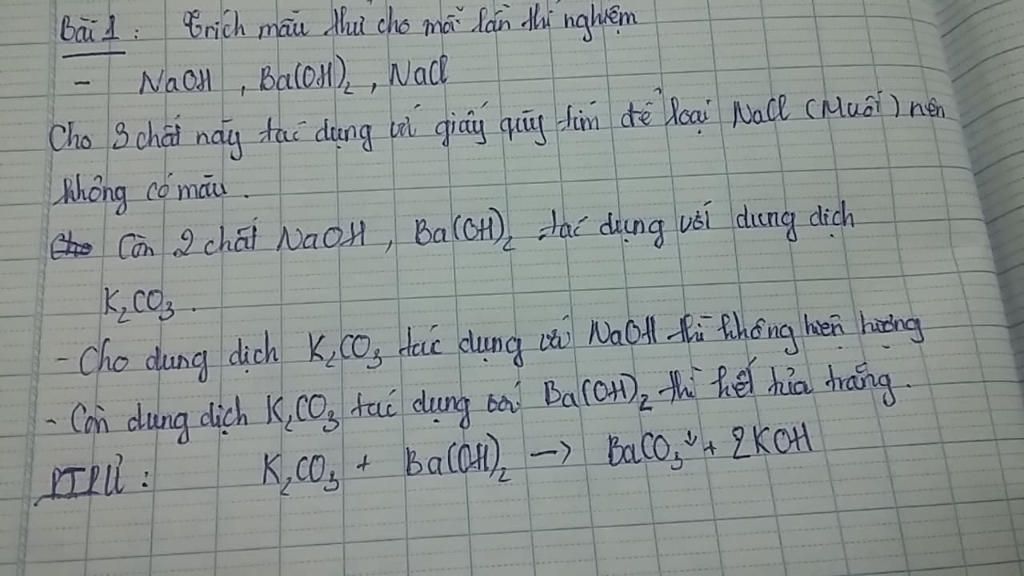 Bài 1: Trích mẫu thử cho mỗi lần thí nghiệm
- NaOH, Ba(OH)₂, NaCl
Cho 3 chất này tác dụng với giấy quỳ tím để loại NaCl (Muối) nên
không có màu.
Còn 2 chất NaOH, Ba(OH)₂ tác dụng với dung dịch
K₂CO₃.
- Cho dung dịch K₂CO₃ tác dụng với NaOH thì không hiện tượng
- Còn dung dịch K₂CO₃ tác dụng với Ba(OH)₂ thì kết tủa trắng.
PTPƯ: K₂CO₃ + Ba(OH)₂ → BaCO₃↓ + 2KOH